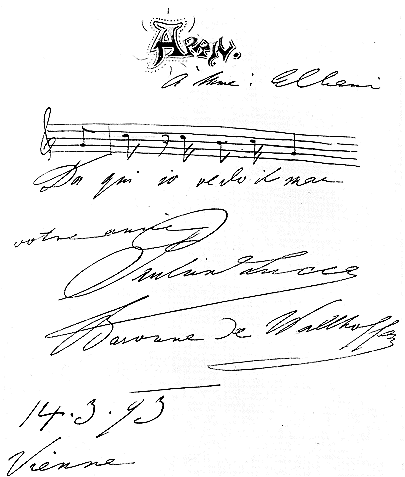 APRIL.
A Mme: Elhani
Da qui io vedo il mar
votre amie
Paulina Lucca
Baronne de Wallhoffen
14.3.93
Vienne